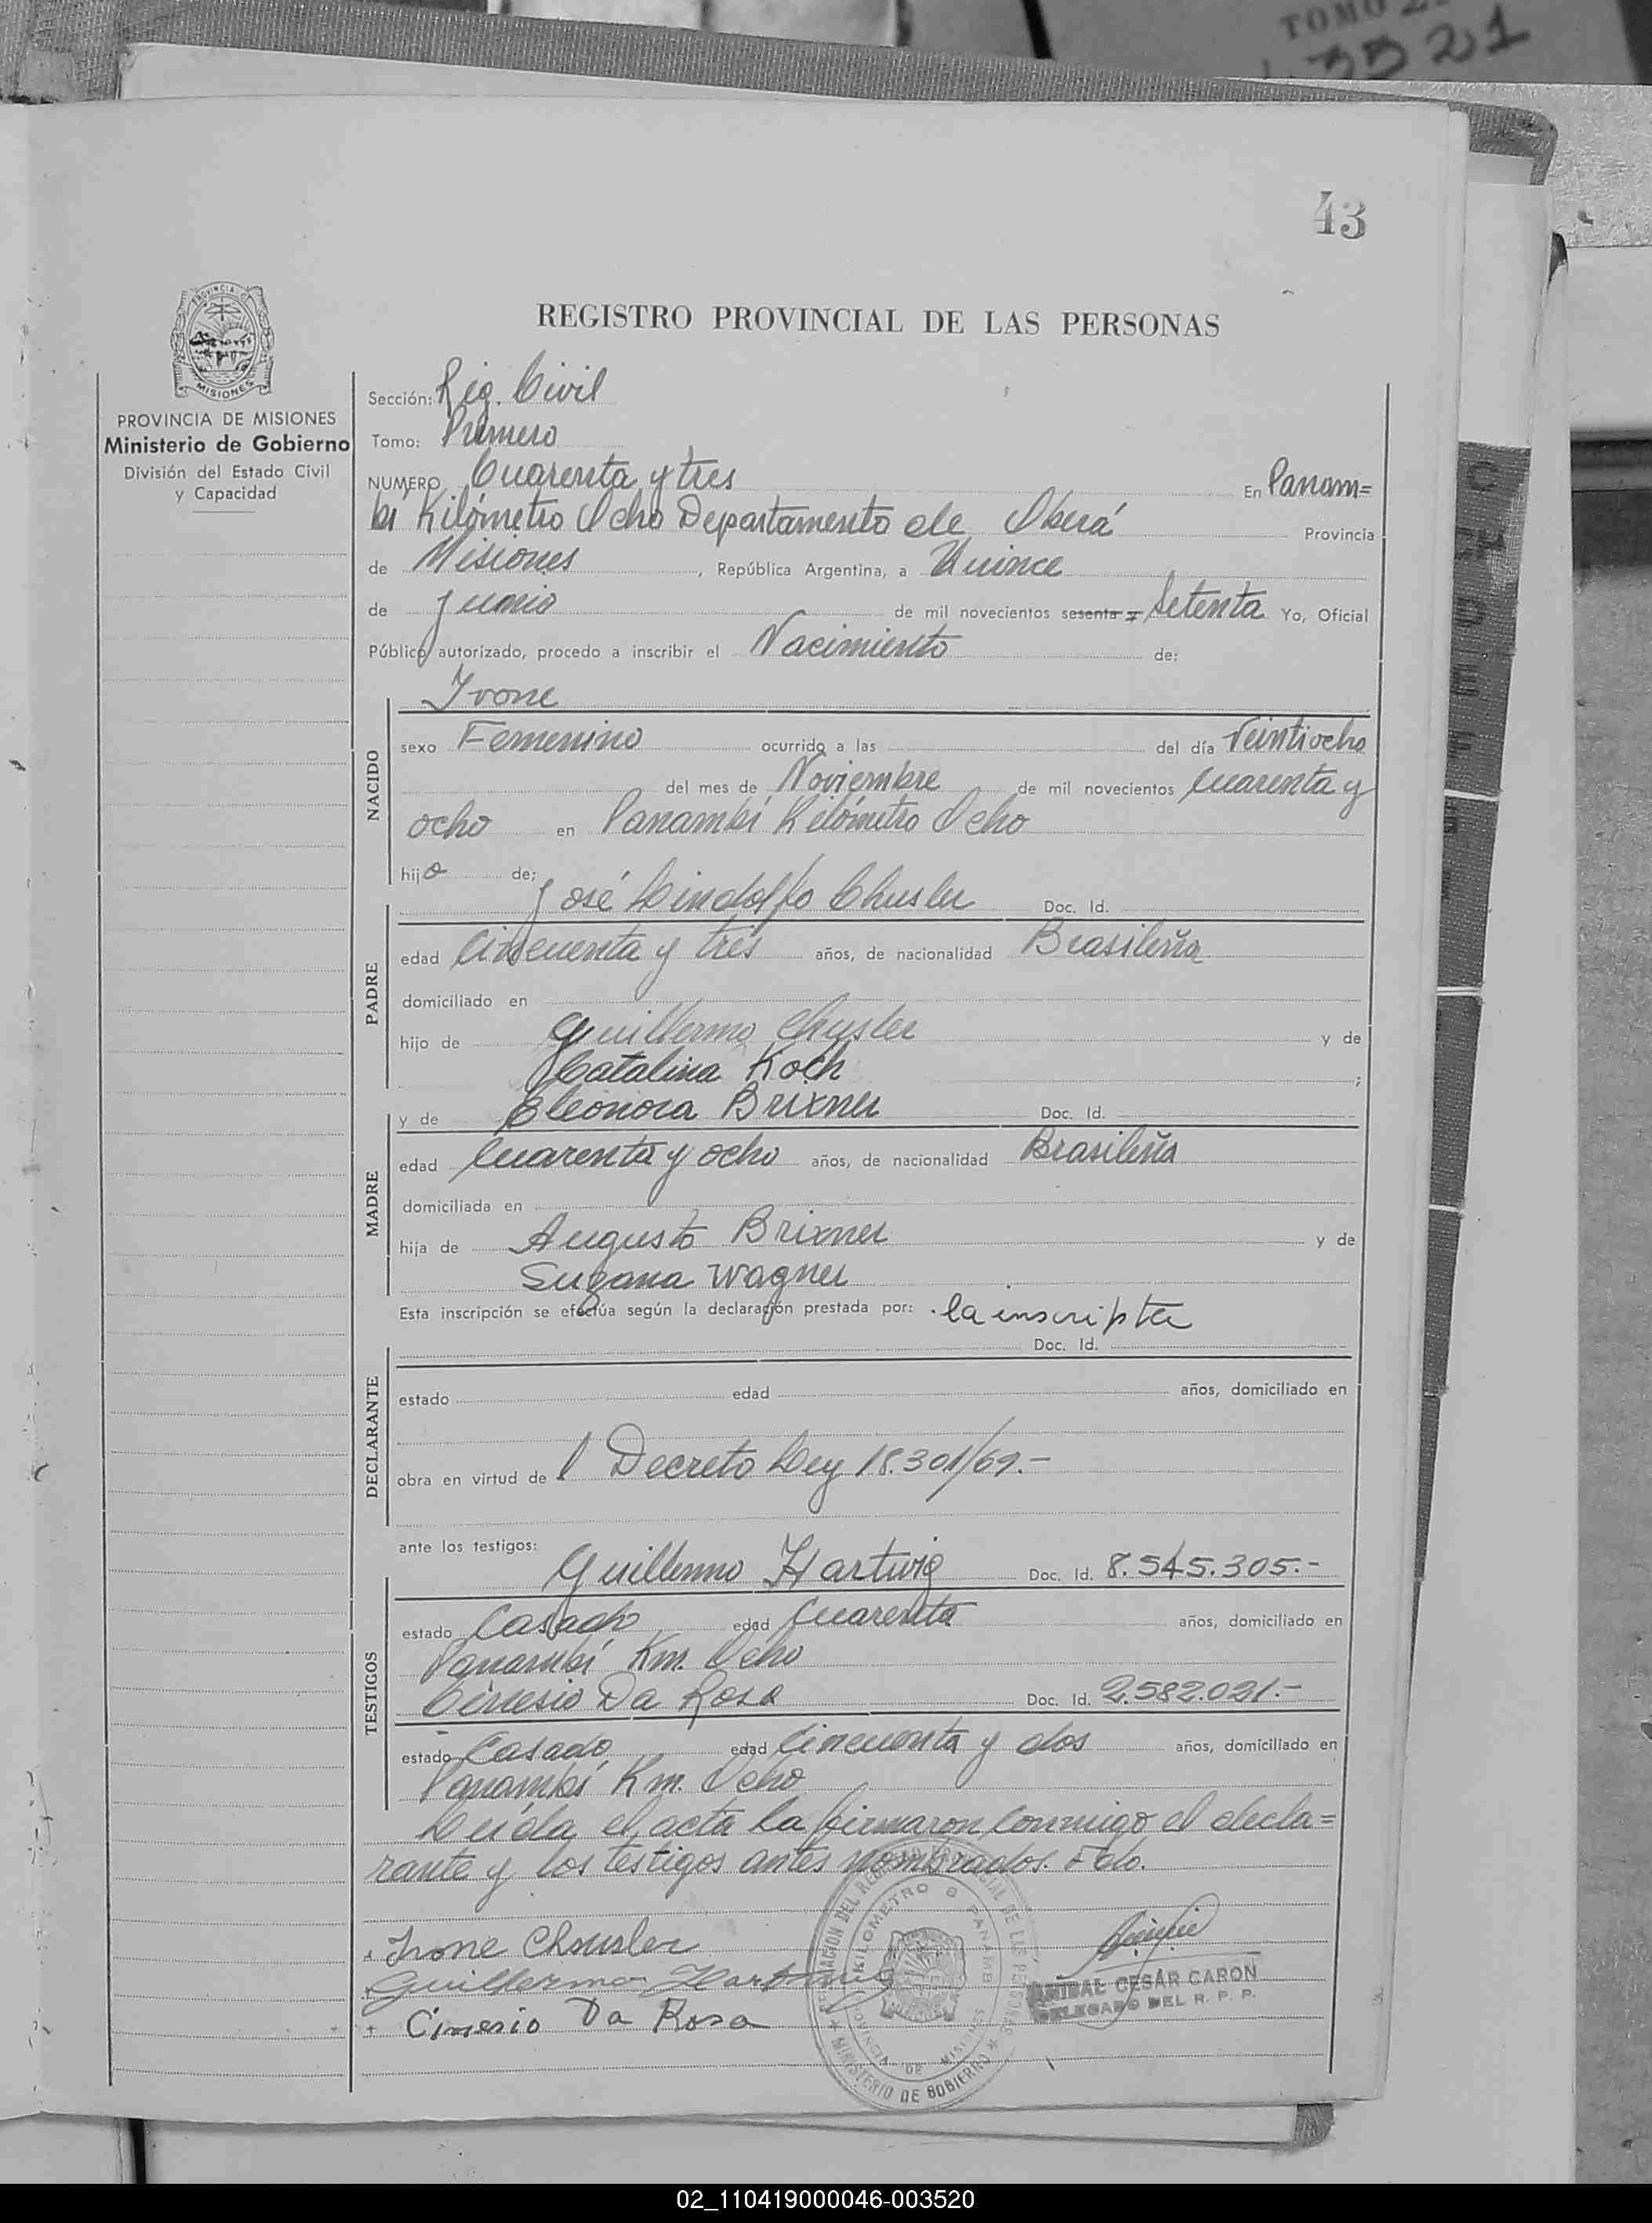 TOMO
3521
43
PROVINCIA DE
MISIONES
PROVINCIA DE MISIONES
Ministerio de Gobierno
División del Estado Civil
y Capacidad
REGISTRO PROVINCIAL DE LAS PERSONAS
Sección: Reg. Civil
Tomo: Primero
NUMERO Cuarenta y tres En Panam=
bí Kilómetro Ocho Departamento de Oberá Provincia
de Misiones, República Argentina, a Quince
de junio de mil novecientos sesenta = Setenta Yo, Oficial
Público autorizado, procedo a inscribir el Nacimiento de:
Ivone
NACIDO
sexo Femenino ocurrido a las del día Veintiocho
del mes de Noviembre de mil novecientos cuarenta y
ocho en Panambí Kilómetro Ocho
hijo de:
José Lindolfo Chusler Doc. Id.
PADRE
edad Cincuenta y tres años, de nacionalidad Brasileña
domiciliado en
hijo de Guillermo Chusler y de
Catalina Koch ;
y de Eleonora Brixner Doc. Id.
MADRE
edad Cuarenta y ocho años, de nacionalidad Brasileña
domiciliada en
hija de Augusto Brixner y de
Suzana Wagner
Esta inscripción se efectúa según la declaración prestada por: la inscripta
Doc. Id.
DECLARANTE
estado edad años, domiciliado en
obra en virtud de l Decreto Ley 18.301/69.-
ante los testigos:
Guillermo Hartwig Doc. Id. 8.545.305.-
TESTIGOS
estado Casado edad Cuarenta años, domiciliado en
Panambí Km. Ocho
Cinesio Da Rosa Doc. Id. 2.582.021.-
estado Casado edad Cincuenta y dos años, domiciliado en
Panambí Km. Ocho
Leída el acta la firmaron conmigo el decla=
rante y los testigos antes nombrados. Fdo.
Ivone Chusler
Guillermo Hartwig
Cinesio Da Rosa
KILOMETRO 8 PANAMBI
PROVINCIA DE MISIONES
MINISTERIO DE GOBIERNO
ANIBAL CESAR CARON
DELEGADO DEL R. P. P.
02_110419000046-003520